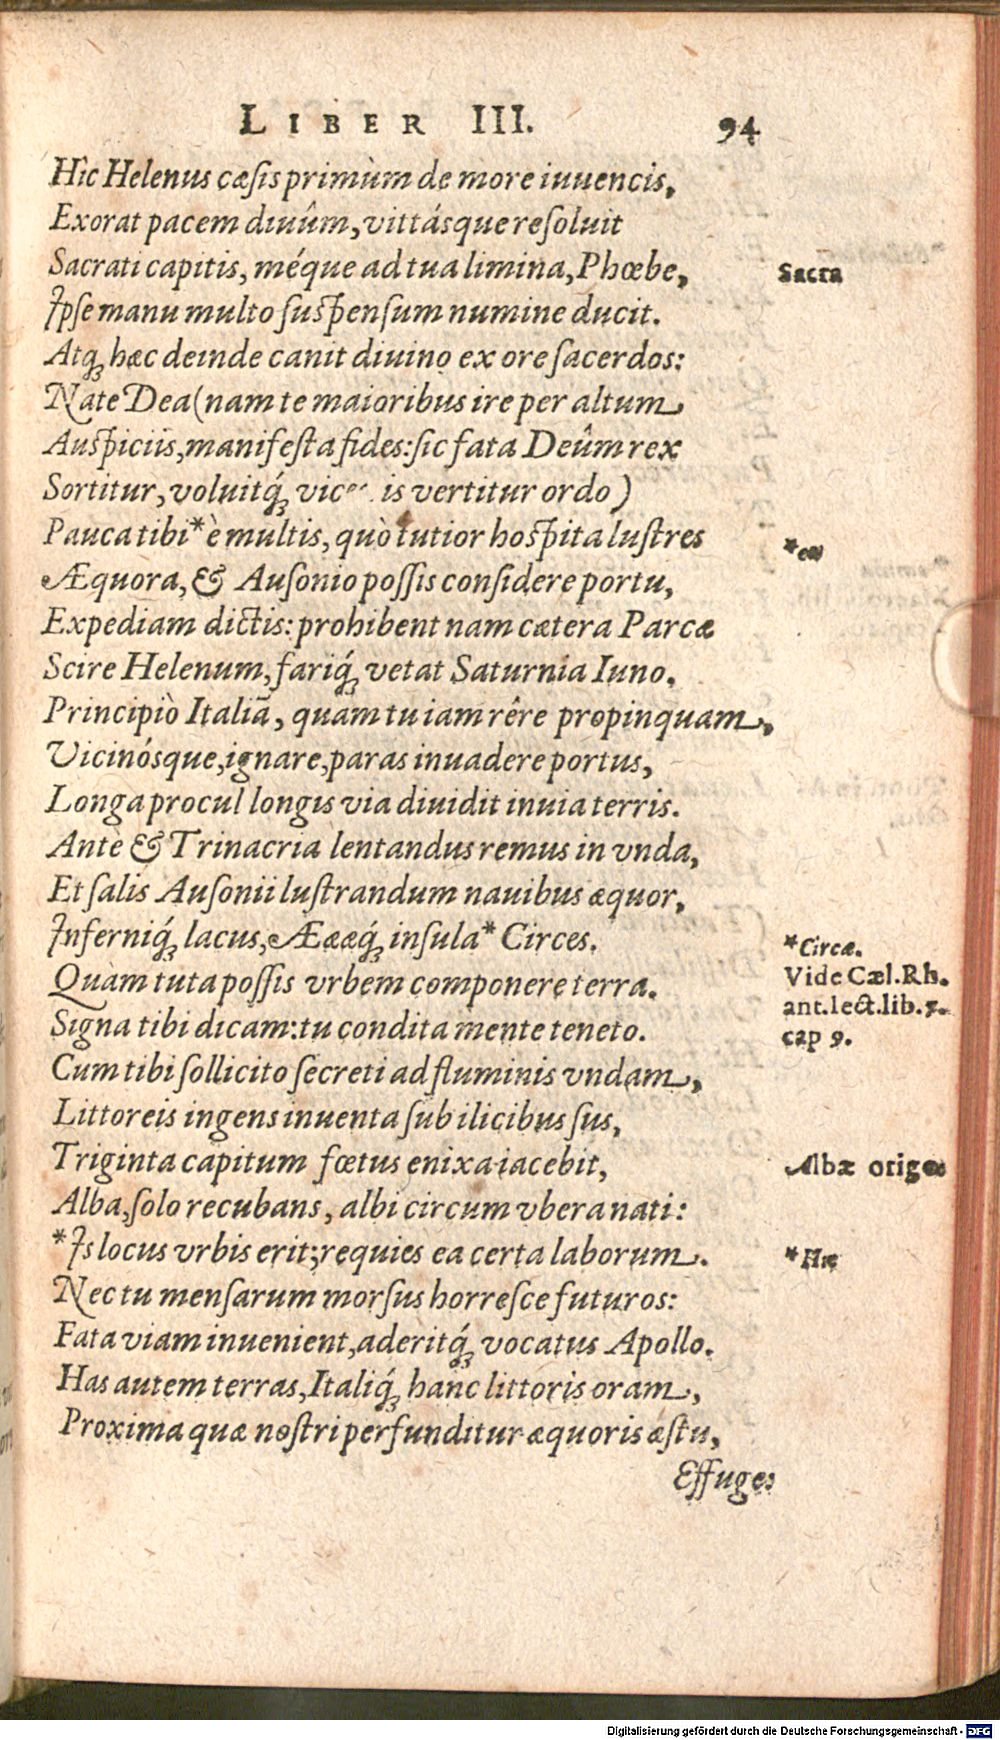 LIBER III. 94
Hîc Helenus cæsis primùm de more iuuencis,
Exorat pacem diuûm, vittásque resoluit
Sacrati capitis, méque ad tua limina, Phœbe,
Sacra
Ipse manu multo suspensum numine ducit.
Atq; hæc deinde canit diuino ex ore sacerdos:
Nate Dea (nam te maioribus ire per altum
Auspiciis, manifesta fides: sic fata Deûm rex
Sortitur, voluitq́; is vertitur ordo)
Pauca tibi * è multis, quò tutior hospita lustres
* ea
Æquora, & Ausonio possis considere portu,
Expediam dictis: prohibent nam cætera Parcæ
Scire Helenum, fariq́; vetat Saturnia Iuno.
Principiò Italiã, quam tu iam rêre propinquam,
Vicinósque, ignare, paras inuadere portus,
Longa procul longis via diuidit inuia terris.
Antè & Trinacria lentandus remus in vnda,
Et salis Ausonii lustrandum nauibus æquor,
Inferniq́; lacus, Æææq́; insula * Circes.
* Circæ.
Quàm tuta possis vrbem componere terra.
Vide Cæl. Rh.
Signa tibi dicam: tu condita mente teneto.
ant. lect. lib. 7.
cap 9.
Cum tibi sollicito secreti ad fluminis vndam,
Littoreis ingens inuenta sub ilicibus sus,
Triginta capitum fœtus enixa iacebit,
Albæ origo
Alba, solo recubans, albi circum vbera nati:
* Is locus vrbis erit; requies ea certa laborum.
* Hic
Nec tu mensarum morsus horresce futuros:
Fata viam inuenient, aderitq́; vocatus Apollo.
Has autem terras, Italiq́; hanc littoris oram,
Proxima quæ nostri perfunditur æquoris æstu,
Effuge:
Digitalisierung gefördert durch die Deutsche Forschungsgemeinschaft - DFG